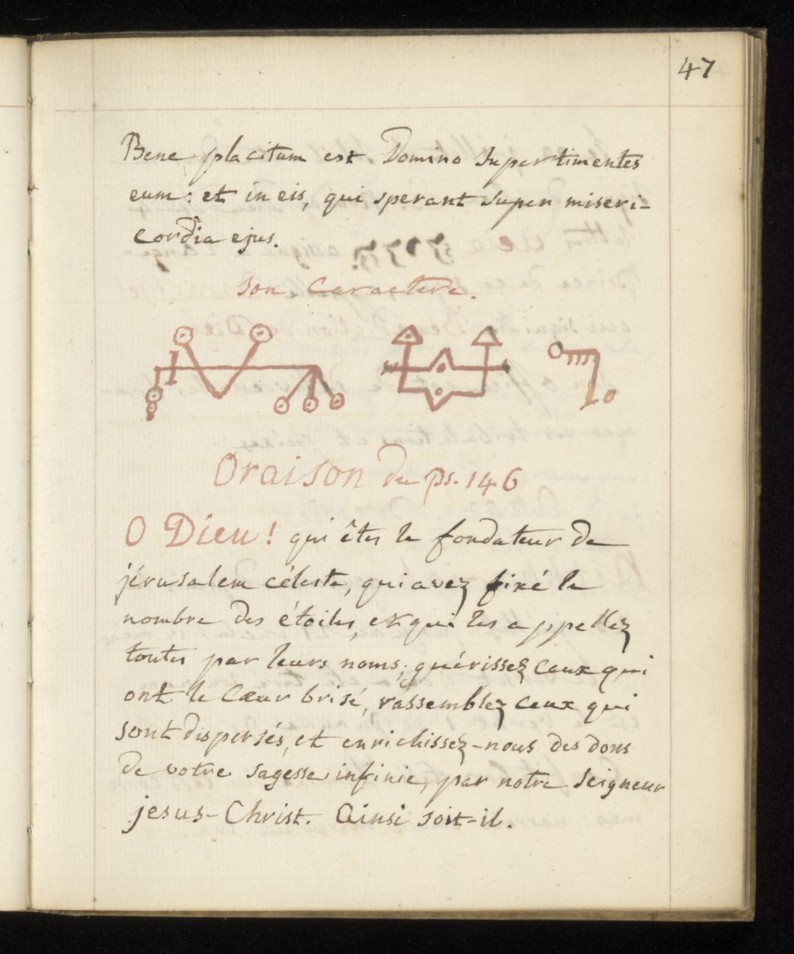 47
Bene placitum est Domino super timentes
eum: et in eis, qui sperant super miseri-
cordia ejus.
Son Caractere.
Oraison du ps. 146
O Dieu! qui êtes le fondateur de
jérusalem céleste, qui avez fixé le
nombre des étoiles, et qui les appellez
toutes par leurs noms; guérissez ceux qui
ont le Cœur brisé, rassemblez ceux qui
sont dispersés, et enrichissez-nous des dons
de votre sagesse infinie, par notre Seigneur
jesus-Christ. Ainsi soit-il.